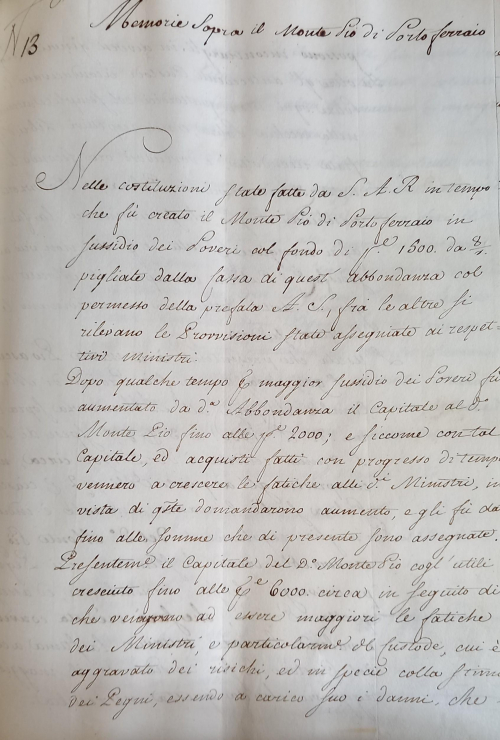 N 13
Memorie Sopra il Monte Pio di Porto ferraio
Nelle costituzioni state fatte da S. A. R in tempo
che fù creato il Monte Pio di Portoferraio in
sussidio dei Poveri col fondo di 1500. da 8/
pigliate dalla Cassa di quest' abbondanza col
permesso della prefata A. S., frà le altre si
rilevano le Provvisioni state assegniate ai respet-
tivi ministri.
Dopo qualche tempo p maggior sussidio dei Poveri fù
aumentato da d.a Abbondanza il Capitale al d.o
Monte Pio fino alle 2000; e siccome con tal
Capitale, ed acquisti fatti con progresso di tempo
vennero a crescere le fatiche alli d.i Ministri, in
vista di qste domandarono aumento, e gli fù da
fino alle somme che di presente sono assegnate.
Presentem.e il Capitale del d.o Monte Pio cogl' utili
cresciuto fino alle 6000. circa in seguito di
che vennero ad essere maggiori le fatiche
dei Ministri, e particolarm.e del Custode, cui è
aggravato dei risichi, ed in specie colla stima
dei Pegni, essendo a carico suo i danni, che